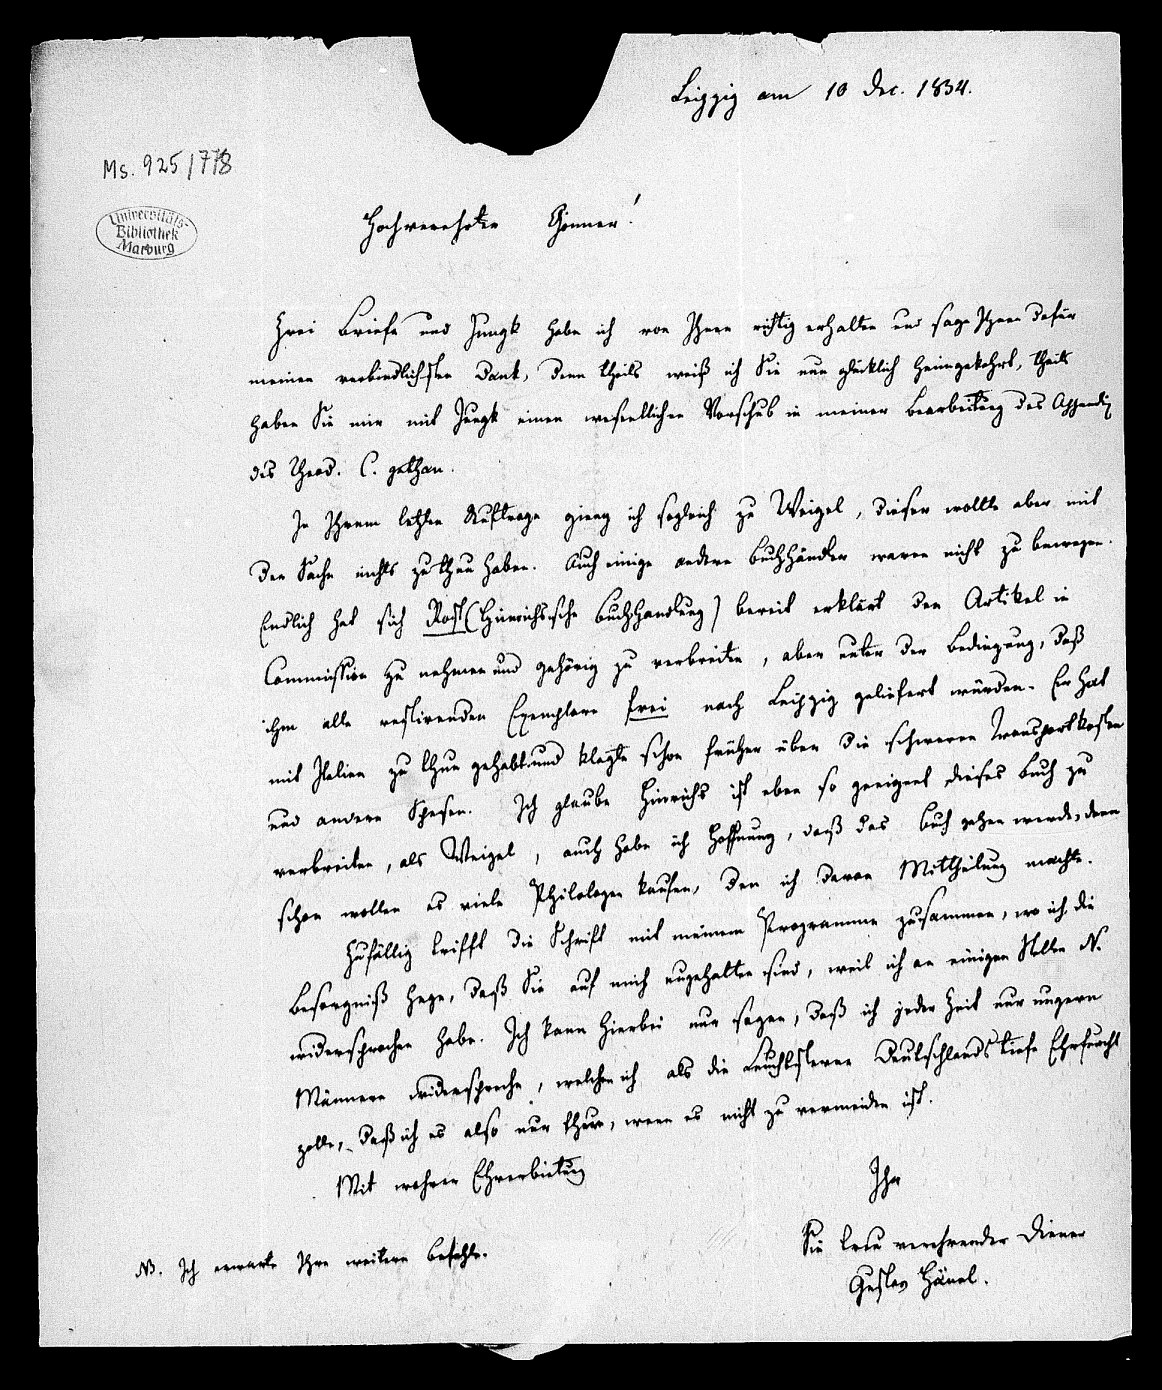 Leipzig am 10 Dec. 1834.
Ms. 925/778
Universitäts-
Bibliothek
Marburg
Hochverehrter Gönner!
Zwei Briefe und Jungk habe ich von Ihnen richtig erhalten und sage Ihnen dafür
meinen verbindlichsten Dank, denn theils weiß ich Sie nun glücklich heimgekehrt, theils
haben Sie mir mit Jungk einen wesentlichen Vorschub in meiner Bearbeitung des Appendix
des Theod. C. gethan.
In Ihrem letzten Auftrage gieng ich sogleich zu Weigel, dieser wollte aber mit
der Sache nichts zu thun haben. Auch einige andere Buchhändler waren nicht zu bewegen.
Endlich hat sich Rost (Hinrichs'sche Buchhandlung) bereit erklärt den Artikel in
Commission zu nehmen und gehörig zu verbreiten, aber unter der Bedingung, daß
ihm alle restirenden Exemplare frei nach Leipzig geliefert würden. Er hat
mit Italien zu thun gehabt und klagte schon früher über die schweren Transportkosten
und andere Spesen. Ich glaube Hinrichs ist eben so geeignet dieses Buch zu
verbreiten, als Weigel, auch habe ich Hoffnung, daß das Buch gehen werde, denn
schon wollen es viele Philologen kaufen, den ich davon Mittheilung machte.
Zufällig trifft die Schrift mit meinem Programme zusammen, wo ich die
Besorgniß hege, daß Sie auf mich ungehalten sind, weil ich an einigen Stellen N.
widersprochen habe. Ich kann hierbei nur sagen, daß ich jeder Zeit nur ungern
Männern widerspreche, welchen ich als die Leuchtsterne Deutschlands tiefe Ehrfurcht
zolle, daß ich es also nur thue, wenn es nicht zu vermeiden ist.
Mit wahrer Ehrerbietung
Ihr
Sie treu verehrender Diener
Gustav Hänel.
NB. Ich erwarte Ihre weitern Befehle.